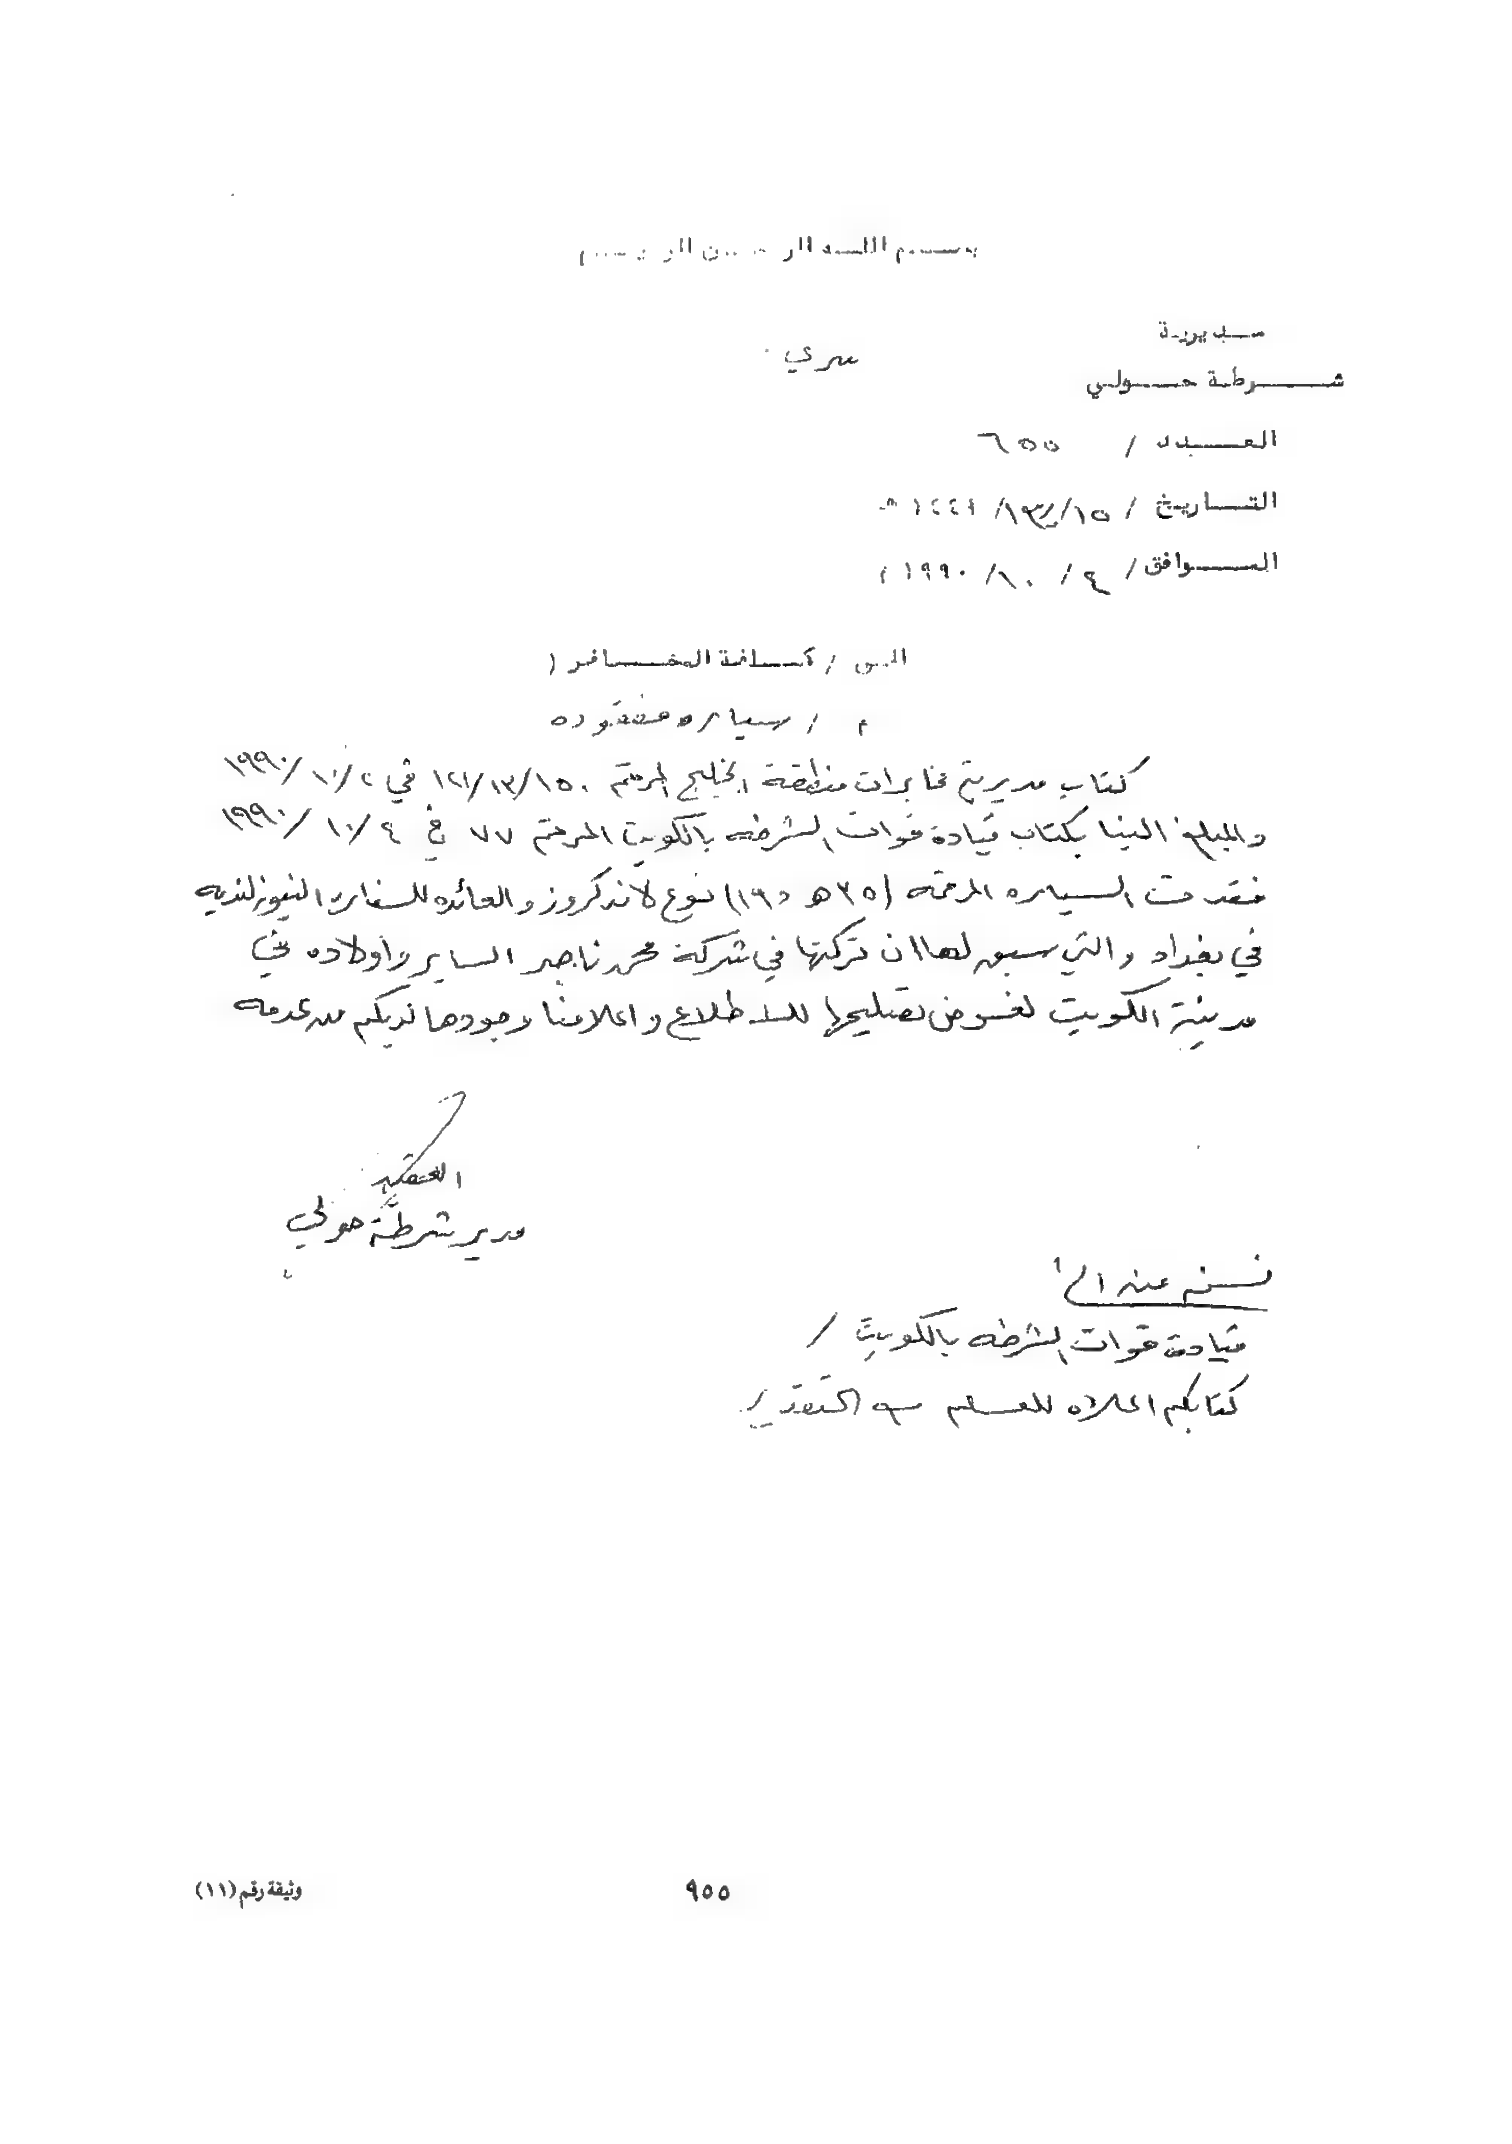 بسم الله الرحمن الرحيم
مديرية
سري
شرطة حولي
العدد / ٦٥٥
التاريخ / ١٥/ /
الموافق / ٤ / ١٠ / ١٩٩٠ م
الى / كافة المخافر (
م / سياره مفقوده
كتاب مديرية مخابرات منطقة الخليج المرقم ١٢١/١٣/١٥٠ في ٢ /١٠/ ١٩٩٠
والمبلغ الينا بكتاب قيادة قوات الشرطه بالكويت المرقم ٧٧ في ٤ /١٠/ ١٩٩٠
فقدت السياره المرقمه (٣٥ هـ ١٩٥) نوع لاندكروز والعائده للسفاره النيوزلنديه
في بغداد والتي سبق لها ان تركتها في شركة محمد ناصر الساير واولاده في
مدينة الكويت لغرض تصليحها للاطلاع واعلامنا وجودها لديكم من عدمه
العقيد
مدير شرطة حولي
نسخه عنه الى /
قيادة قوات الشرطه بالكويت /
كتابكم اعلاه للعلم مع التقدير
وثيقة رقم (١١)
٩٥٥